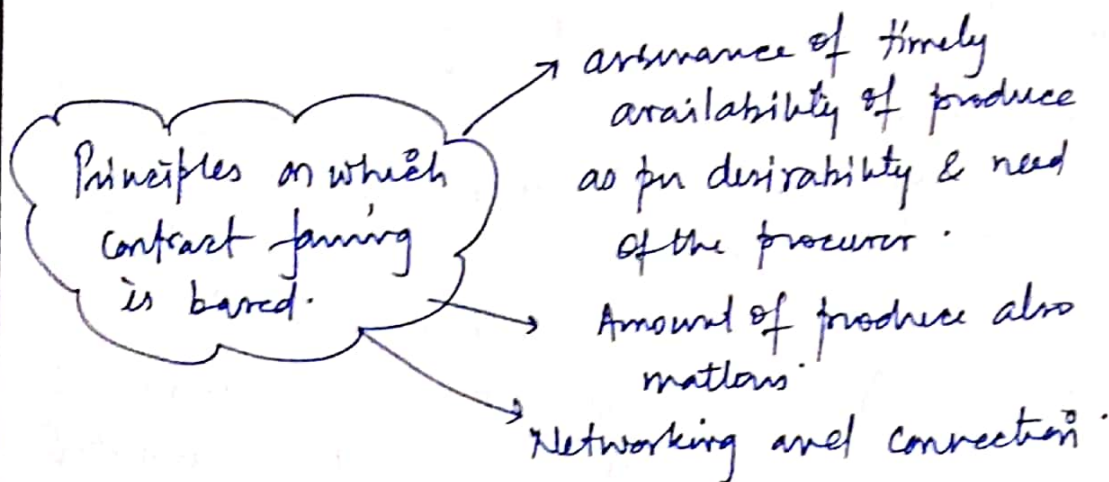 Principles on which
contract farming
is based.
assurance of timely
availability of produce
as per desirability & need
of the procurer.
Amount of produce also
matters.
Networking and connection.